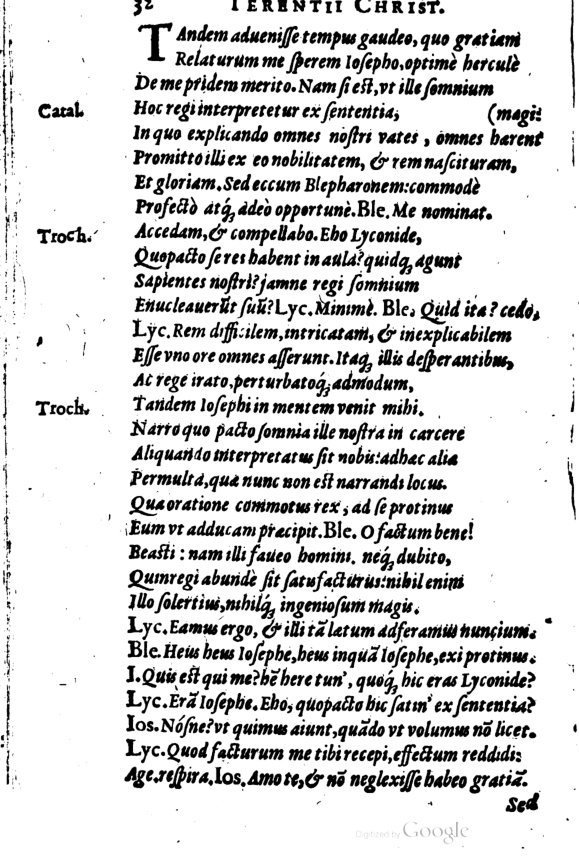 32 TERENTII CHRIST.
TAndem adueniſſe tempus gaudeo, quo gratiam
Relaturum me ſperem Ioſepho, optimè herculè
De me pridem merito. Nam ſi eſt, vt ille ſomnium
Catal. Hoc regi interpretetur ex ſententia, (magi:
In quo explicando omnes noſtri vates, omnes hærent
Promitto illi ex eo nobilitatem, & rem naſcituram,
Et gloriam. Sed eccum Blepharonem: commodè
Profectò atq; adeò opportunè. Ble. Me nominat.
Troch. Accedam, & compellabo. Eho Lyconide,
Quopacto ſe res habent in aula? quidq; agunt
Sapientes noſtri? jamne regi ſomnium
Enucleauerūt ſuū? Lyc. Minimè. Ble. Quid ita? cedo,
Lyc. Rem difficilem, intricatam, & inexplicabilem
Eſſe vno ore omnes aſſerunt. Itaq; illis deſperantibus,
Ac rege irato, perturbatoq; admodum,
Troch. Tandem Ioſephi in mentem venit mihi.
Narro quo pacto ſomnia ille noſtra in carcere
Aliquando interpretatus ſit nobis: adhæc alia
Permulta, quæ nunc non eſt narrandi locus.
Qua oratione commotus rex, ad ſe protinus
Eum vt adducam præcipit. Ble. O factum bene!
Beaſti: nam illi faueo homini. neq; dubito,
Quin regi abundè ſit ſatisfacturus: nihil enim
Illo ſolertius, nihilq; ingenioſum magis.
Lyc. Eamus ergo, & illi tā lætum adferamus nuncium.
Ble. Heus heus Ioſephe, heus inquā Ioſephe, exi protinus.
I. Quis eſt qui me? hē here tun', quoq; hic eras Lyconide?
Lyc. Erā Ioſephe. Eho, quopacto hic ſatin' ex ſententia?
Ios. Nóſne? vt quimus aiunt, quādo vt volumus nō licet.
Lyc. Quod facturum me tibi recepi, effectum reddidi:
Age, reſpira. Ios. Amo te, & nō neglexiſſe habeo gratiā.
Sed
Digitized by Google